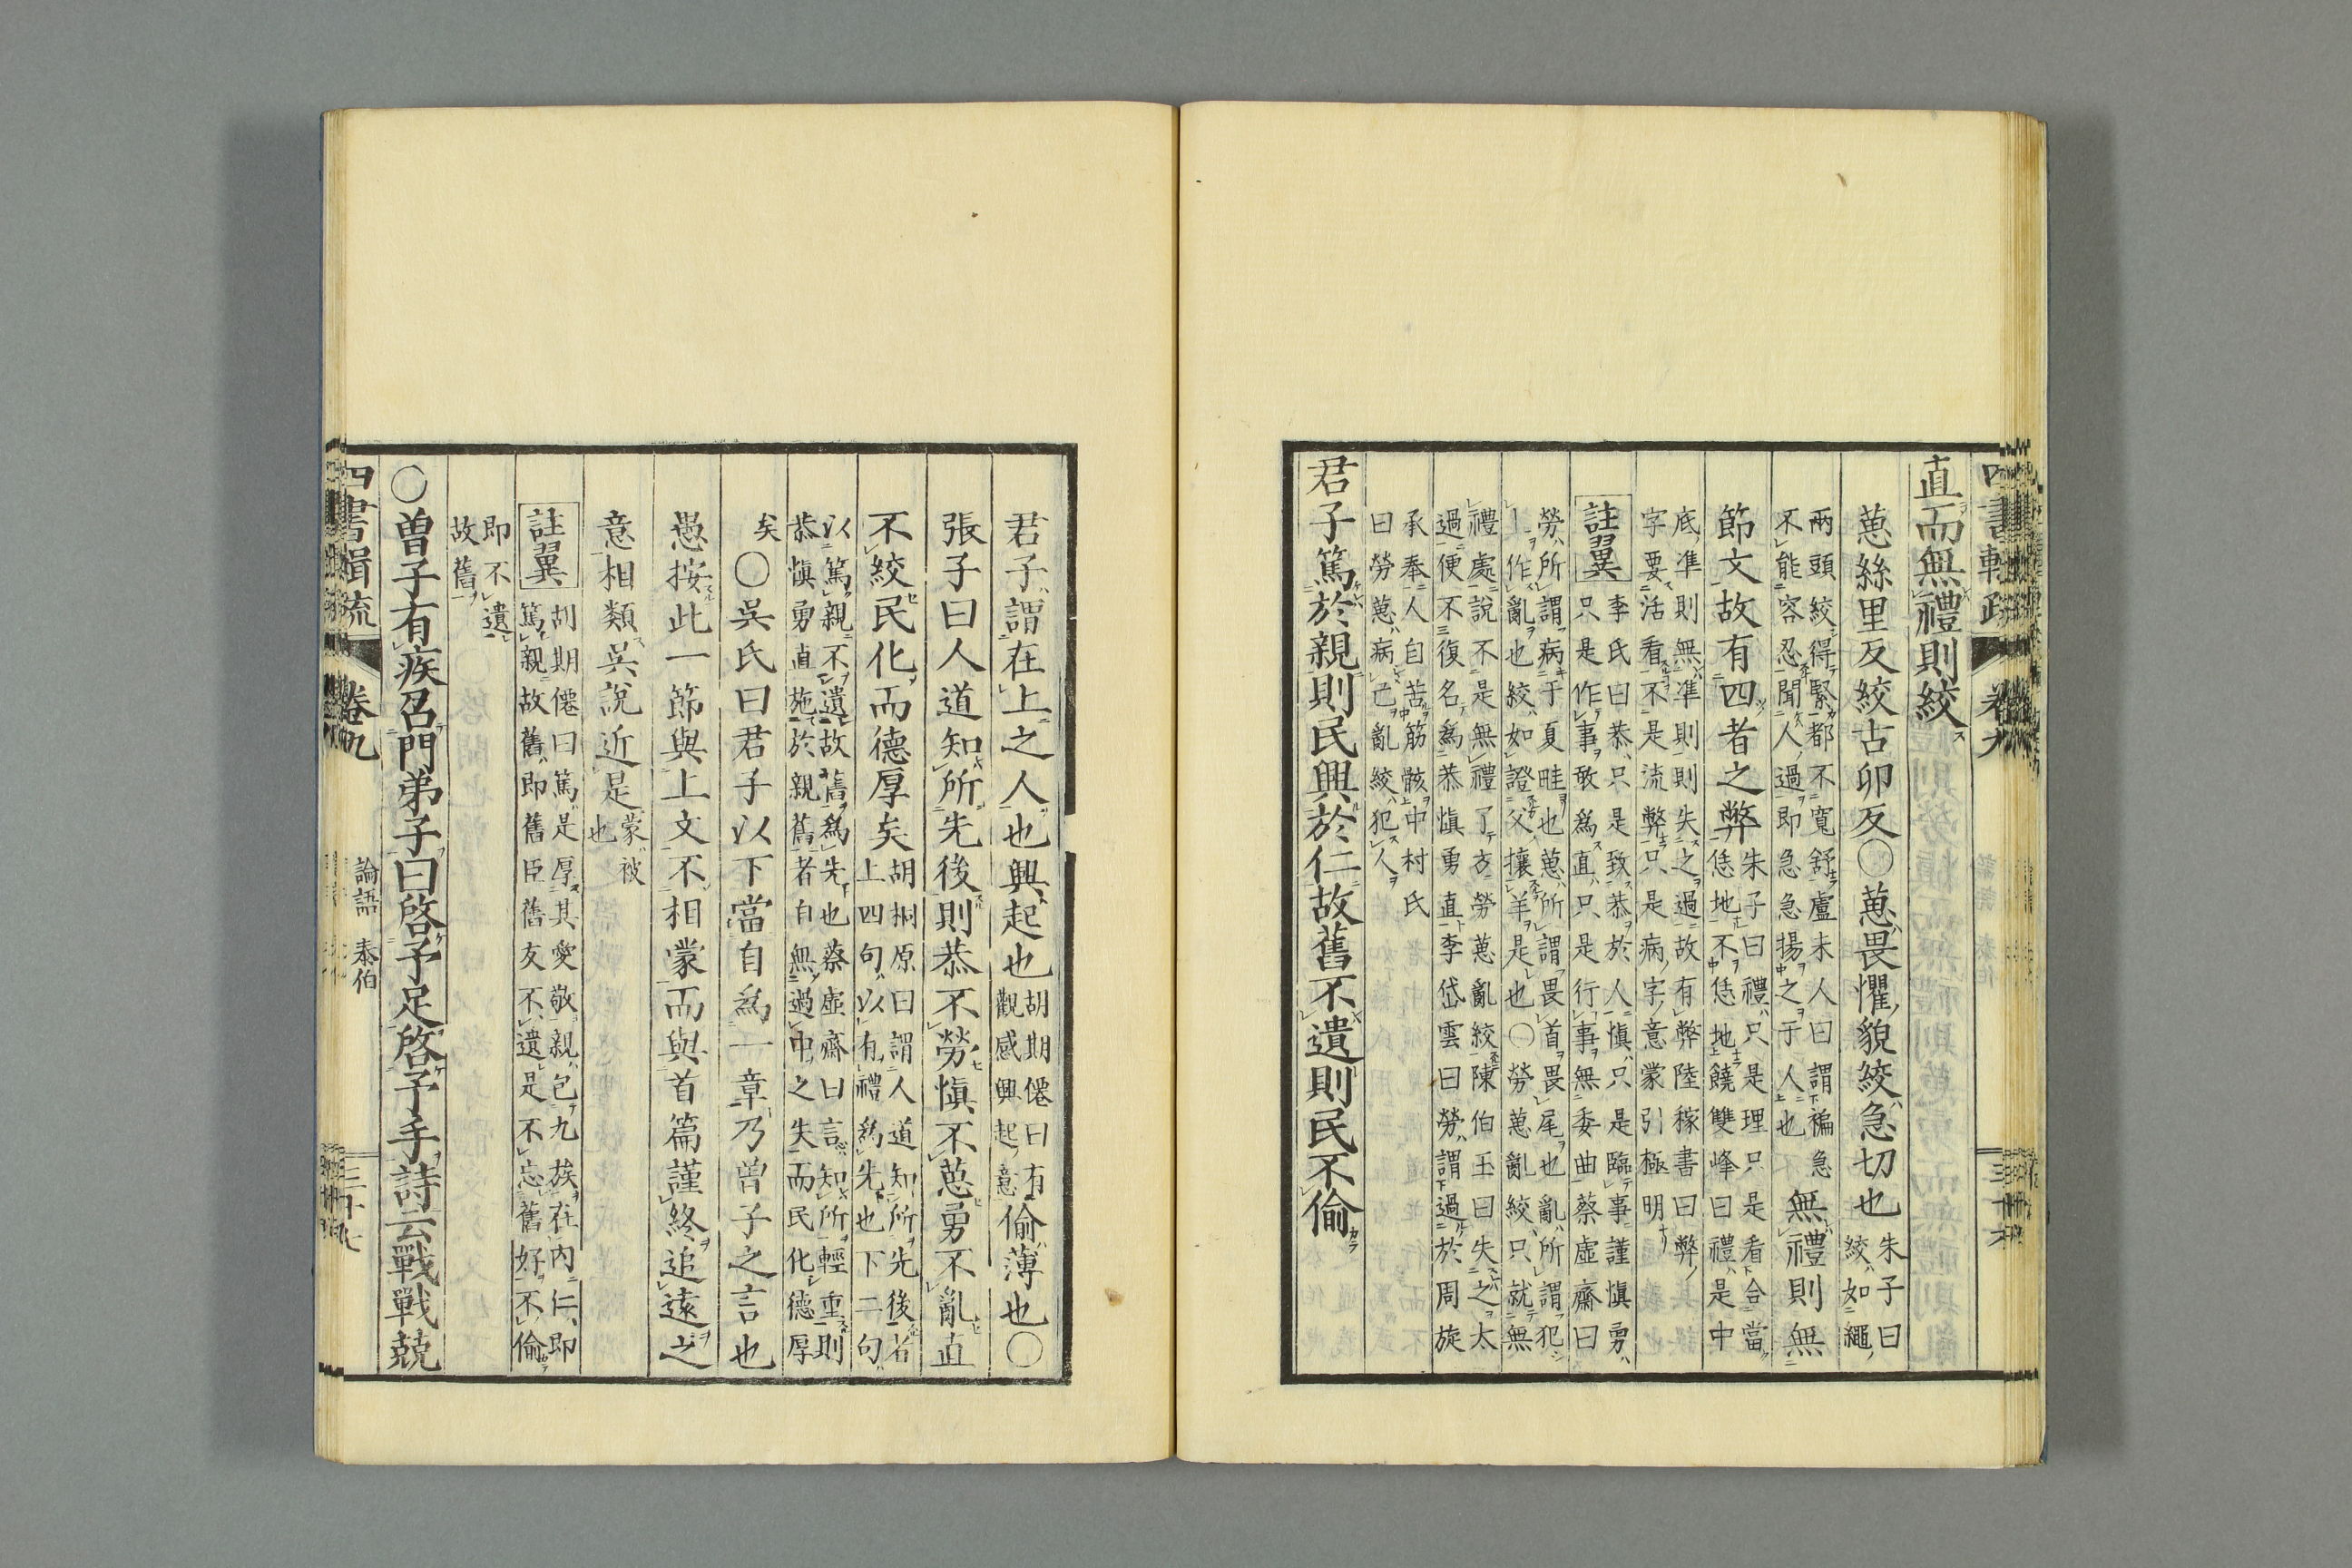 直而無禮則絞
葸絲里反絞古卯反○葸畏懼貌絞急切也朱子曰絞如繩
兩頭絞得緊都不寬舒盧未人曰謂褊急不能容忍聞人過即急急揚之于人也無禮則無
節文故有四者之弊朱子曰禮只是理只是看合當恁地不恁地饒雙峰曰禮是中
底準則無準則則失之過故有弊陸稼書曰弊字要活看不是流弊只是病字意蒙引極明
註翼李氏曰恭只是致恭於人慎只是臨事謹慎勇只是作事敢為直只是行事無委曲蔡虛齋曰
勞所謂病于夏畦也葸所謂畏首畏尾也亂所謂犯上作亂也絞如證父攘羊是也○勞葸亂絞只就無
禮處說不是無禮了方勞葸亂絞陳伯玉曰失之太過便不復名為恭慎勇直李岱雲曰勞謂過於周旋
承奉人自苦筋骸中村氏曰勞葸病己亂絞犯人
君子篤於親則民興於仁故舊不遺則民不偷
君子謂在上之人也興起也胡期僊曰有觀感興起意偷薄也○
張子曰人道知所先後則恭不勞慎不葸勇不亂直
不絞民化而德厚矣胡桐原曰謂人道知所先後者上四句以有禮為先也下二句
以篤親不遺故舊為先也蔡虛齋曰言知所輕重則恭慎勇直施於親舊者自無過中之失而民化德厚
矣○吳氏曰君子以下當自為一章乃曾子之言也
愚按此一節與上文不相蒙而與首篇謹終追遠之
意相類吳說近是蒙被也
註翼胡期僊曰篤是厚其愛敬親包九族在內仁即篤親故舊即舊臣舊友不遺是不忘舊好不偷
即不遺故舊
○曾子有疾召門弟子曰啓予足啓予手詩云戰戰兢
四書輯疏 卷九 論語 泰伯 三十七